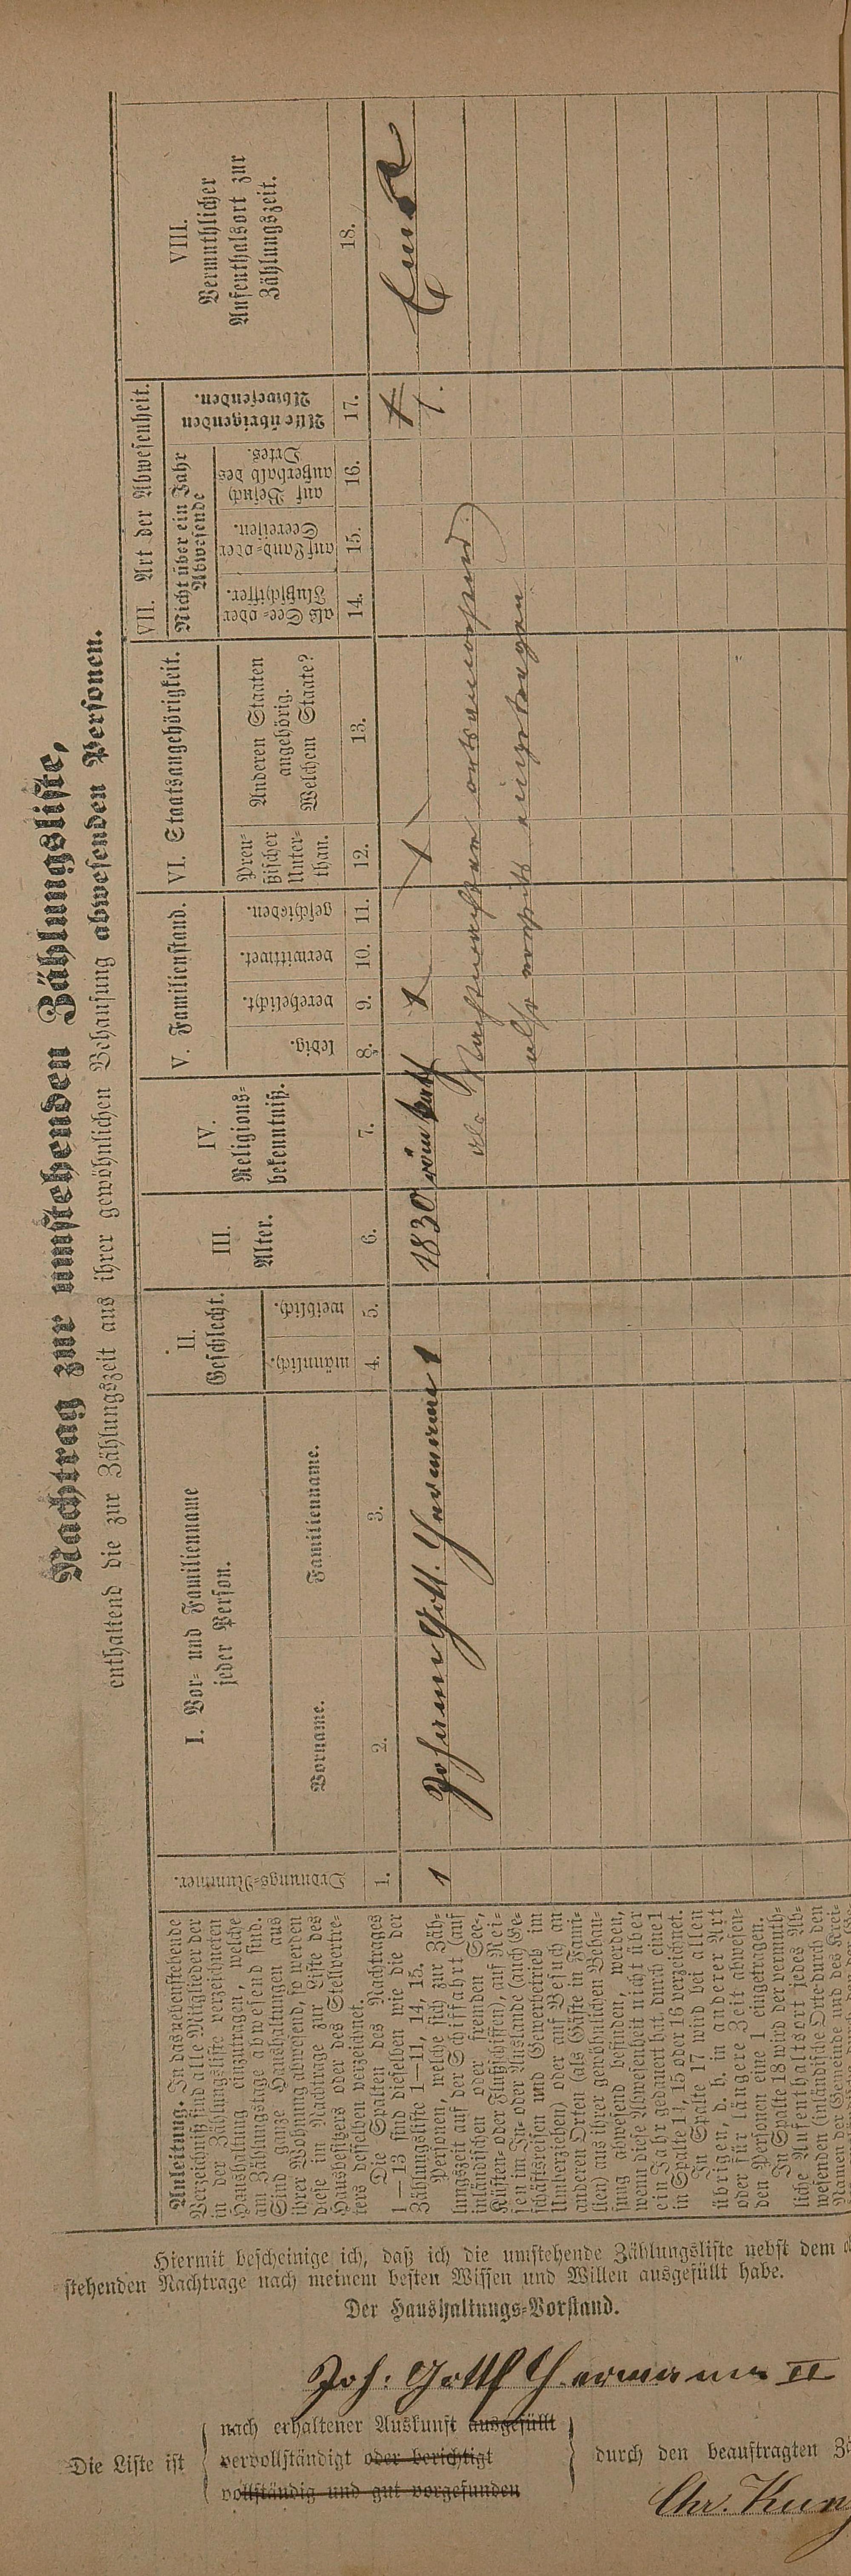 Nachtrag zur umstehenden Zählungsliste,
enthaltend die zur Zählungszeit aus ihrer gewöhnlichen Behausung abwesenden Personen.
Anleitung. In das nebenstehende
Verzeichniß sind alle Mitglieder der
in der Zählungsliste verzeichneten
Haushaltung einzutragen, welche
am Zählungstage abwesend sind.
Sind ganze Haushaltungen aus
ihrer Wohnung abwesend, so werden
diese im Nachtrage zur Liste des
Hausbesitzers oder des Stellvertre-
ters desselben verzeichnet.
Die Spalten des Nachtrages
1—13 sind dieselben wie die der
Zählungsliste 1—11, 14, 15.
Personen, welche sich zur Zäh-
lungszeit auf der Schifffahrt (auf
inländischen oder fremden See-,
Küsten- oder Flußschiffen), auf Rei-
sen im In- oder Auslande (auch Ge-
schäftsreisen und Gewerbetrieb im
Umherziehen) oder auf Besuch an
anderen Orten (als Gäste in Fami-
lien) aus ihrer gewöhnlichen Behau-
sung abwesend befinden, werden,
wenn diese Abwesenheit nicht über
ein Jahr gedauert hat, durch eine 1
in Spalte 14, 15 oder 16 verzeichnet.
In Spalte 17 wird bei allen
übrigen, d. h. in anderer Art
oder für längere Zeit abwesen-
den Personen eine 1 eingetragen.
In Spalte 18 wird der vermuth-
liche Aufenthaltsort jedes Ab-
wesenden (inländische Orte durch den
Namen der Gemeinde und des Krei-
Ordnungs-Nummer.
I. Vor- und Familienname
jeder Person.
Vorname.
Familienname.
II.
Geschlecht.
männlich.
weiblich.
III.
Alter.
IV.
Religions-
bekenntniß.
V. Familienstand.
ledig.
verehelicht.
verwittwet.
geschieden.
VI. Staatsangehörigkeit.
Preu-
ßischer
Unter-
than.
Anderen Staaten
angehörig.
Welchem Staate?
VII. Art der Abwesenheit.
Nicht über ein Jahr
Abwesende
als See- oder
Flußschiffer.
auf Land- oder
Seereisen.
auf Besuch
außerhalb des
Ortes.
Alle übrigen
Abwesenden.
VIII.
Vermuthlicher
Aufenthalsort zur
Zählungszeit.
1. 2. 3. 4. 5. 6. 7. 8. 9. 10. 11. 12. 13. 14. 15. 16. 17. 18.
1 Johann Gottf. Hermann 1 1830 röm kath 1 1 1.
als Nachtwächter ortsanwesend
also vorseits eingetragen
Hiermit bescheinige ich, daß ich die umstehende Zählungsliste nebst dem
stehenden Nachtrage nach meinem besten Wissen und Willen ausgefüllt habe.
Der Haushaltungs-Vorstand.
Joh: Gottf Hermann II
Die Liste ist
nach erhaltener Auskunft ausgefüllt
vervollständigt oder berichtigt
vollständig und gut vorgefunden
durch den beauftragten
Chr. Kunz